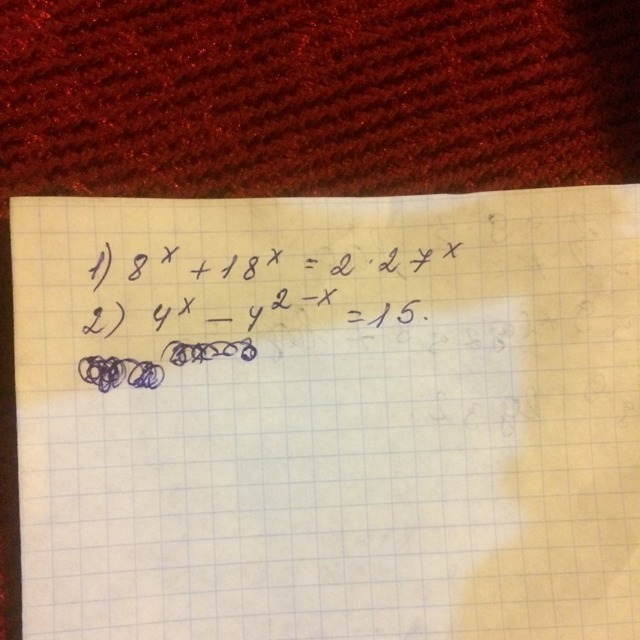 1) 8^x + 18^x = 2 · 27^x
2) 4^x − 4^{2−x} = 15.